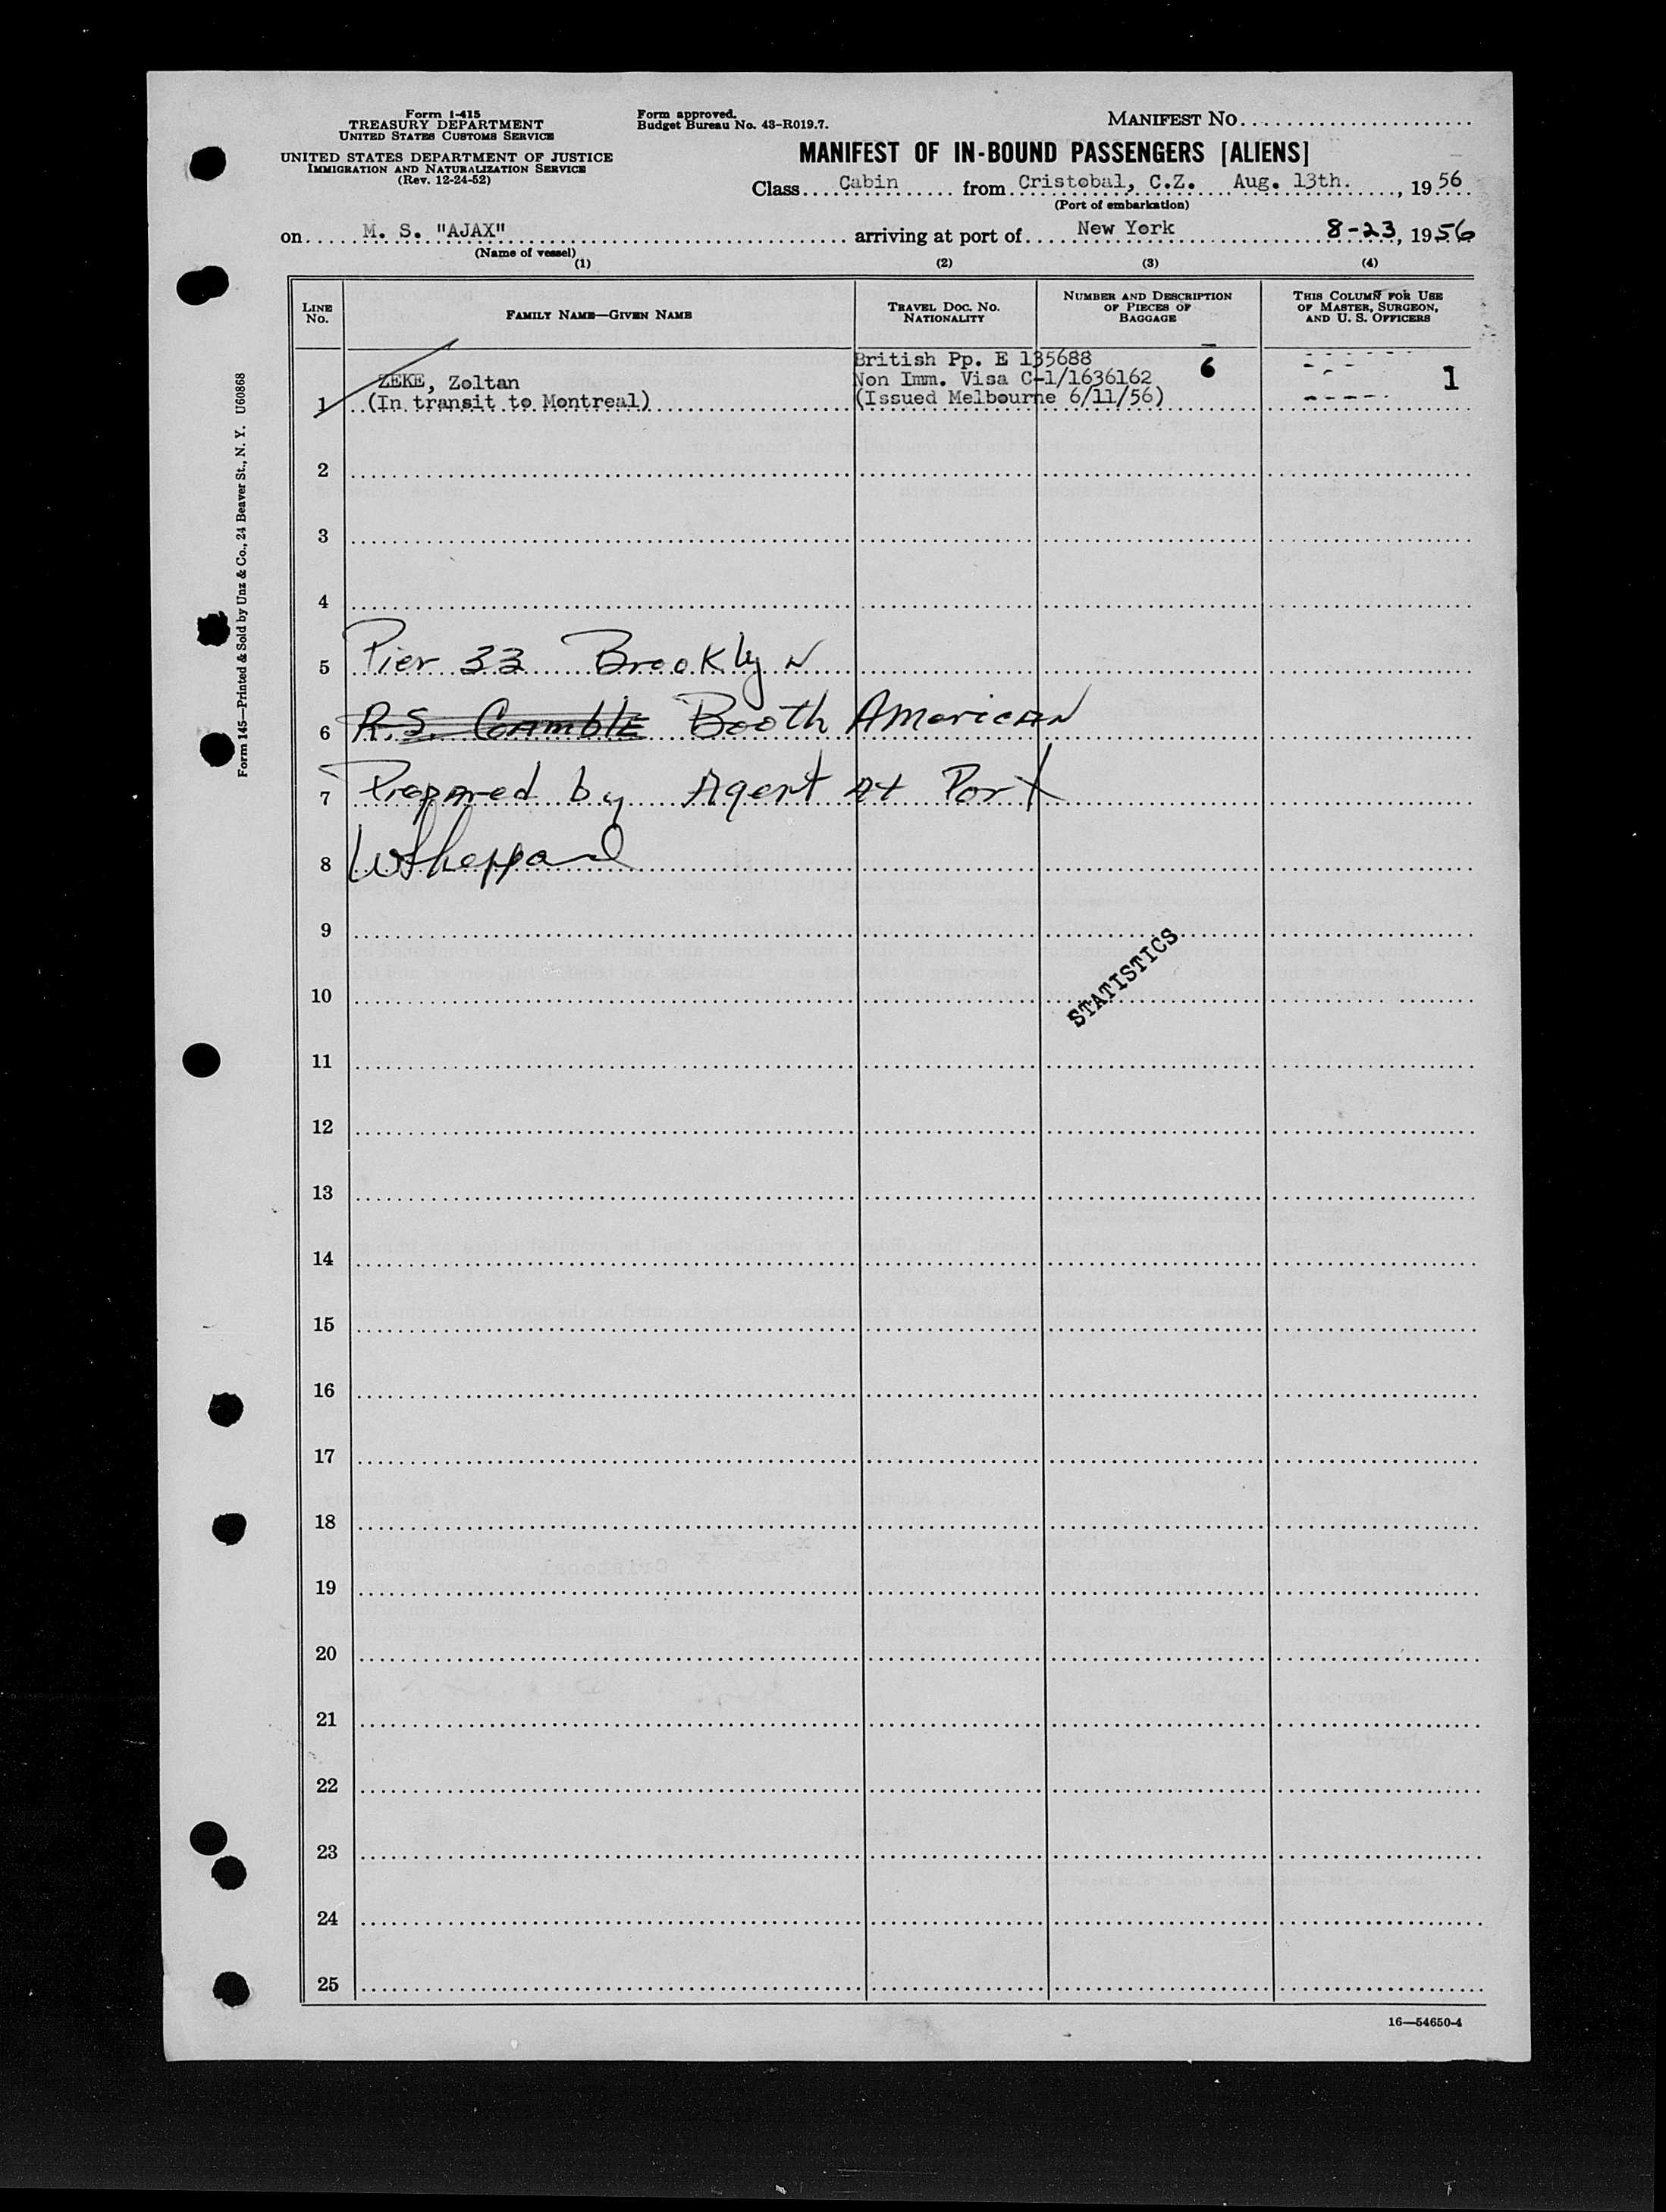 Form I-415
TREASURY DEPARTMENT
UNITED STATES CUSTOMS SERVICE
UNITED STATES DEPARTMENT OF JUSTICE
IMMIGRATION AND NATURALIZATION SERVICE
(Rev. 12-24-52)
Form approved.
Budget Bureau No. 43-R019.7.
MANIFEST NO.
MANIFEST OF IN-BOUND PASSENGERS [ALIENS]
Class Cabin from Cristobal, C.Z. Aug. 13th. , 19 56
(Port of embarkation)
on M. S. "AJAX" arriving at port of New York 8-23, 1956
(Name of vessel)
(1) (2) (3) (4)
LINE NO.
FAMILY NAME—GIVEN NAME
TRAVEL DOC. NO. NATIONALITY
NUMBER AND DESCRIPTION OF PIECES OF BAGGAGE
THIS COLUMN FOR USE OF MASTER, SURGEON, AND U. S. OFFICERS
British Pp. E 135688 6
ZEKE, Zoltan Non Imm. Visa C-1/1636162 1
1 (In transit to Montreal) (Issued Melbourne 6/11/56)
2
3
4
5 Pier 33 Brooklyn
6 R.S. Gamble Booth American
7 Prepared by Agent At Port
8 WSheppard
9
STATISTICS
10
11
12
13
14
15
16
17
18
19
20
21
22
23
24
25
16—54650-4
Form 145—Printed & Sold by Unz & Co., 24 Beaver St., N. Y. U60868